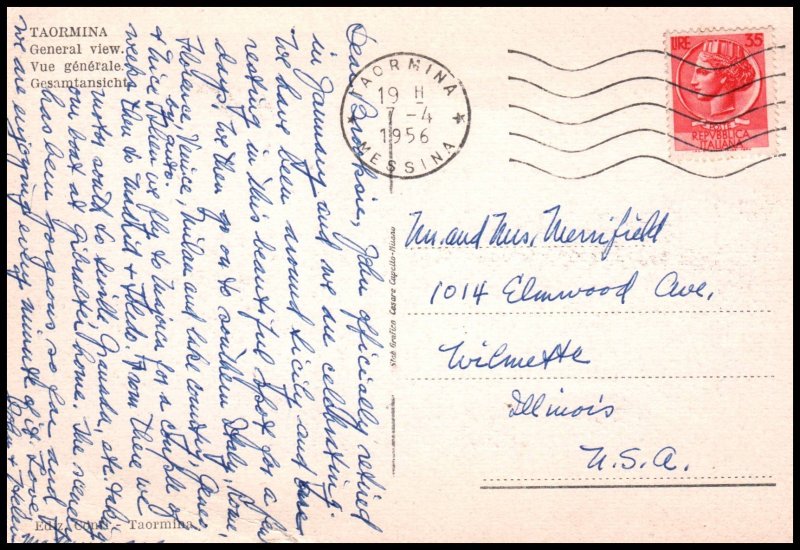 TAORMINA
General view.
Vue générale.
Gesamtansicht.
TAORMINA
19 H
7-4
1956
MESSINA
LIRE 35
POSTE
REPVBBLICA
ITALIANA
Mr. and Mrs. Merrifield
1014 Elmwood Ave.
Wilmette
Illinois
U.S.A.
Dear John officially retired
in January and we are celebrating.
We have been around Sicily and are
resting in this beautiful spot for a few
days. We then go on to southern Italy, Rome,
Florence, Venice, Milan and lake country, Genoa
& Nice. Then we fly to for a couple of
weeks then to Madrid & Toledo. From there we
motor south to Seville, Granada, etc. take
our boat at Gibraltar home. The scenery
has been gorgeous so far and
we are enjoying every minute of it. Love
John & Helen
Ediz. - Taormina